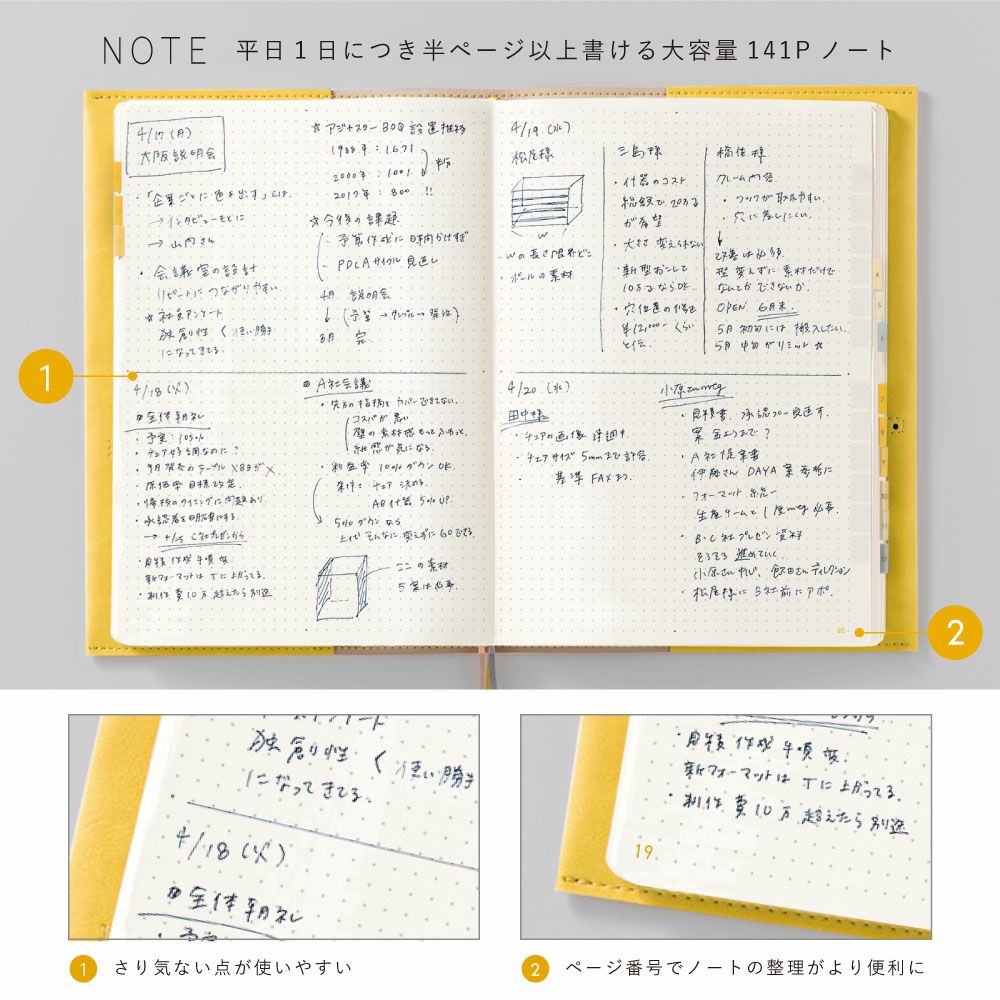 NOTE 平日1日につき半ページ以上書ける大容量141Pノート
4/17(月)
大阪説明会
・「企業ごとに色を出す」しは、
→インタビューもとに
→山内さん
・会議室の設計
リピートにつながりやすい
☆社員アンケート
独創性 く 使い勝手
になってきてる。
☆アジャスターBOQ設置推移
1988年:1671
2000年:1001
2017年:800 !!
☆今後の課題
・予算作成に日時かけすぎ
・PDCAサイクル見直し
4月 説明会
↓(予算→サンプル→発注)
8月 完
1
4/18(火)
全体朝礼
・予実:105%
・チェア好調なのに?
・9月発売のテーブル×8日が×
・原価率目標設定。
・帰社のタイミングに問題あり。
・承認者を明確にする。
→4/25 C社プレゼンから
・見積作成手順変。
新フォーマットはTに上がってる。
・制作費10万超えたら別途
A社会議
・先方の指摘をカバーできてない。
コスパが悪い
壁の素材感もっとふわっと。
和感が気になる。
・利益率10%ダウンOK。
条件:チェア決める。
AB什器5%UP。
5%ダウンなら
上代そんなに変えずにGOできる。
ここの素材
5案は必要。
4/19(水)
松尾様
w
・wの長さ限界どこ
・ポールの素材
三島様
・什器のコスト
総数で20万が希望
・大きさ変えられない
・新型おこして
10万ならOK。
・穴位置の修正
¥12,000-くらい
と伝。
福住様
クレーム内容
・フックが取れやすい。
・穴に差しにくい。
↓
改善は必須
型変えずに素材だけで
なんとかできないか。
OPEN 6月末。
5月初旬には搬入したい。
5月中旬がリミット☆
4/20(水)
田中様
・チェアの画像準備中。
・チェアサイズ5mmまで許容。
・基準FAXまつ。
小原さんmtg
・見積書、承認フロー見直す。
案金ようまで?
・A社提案書
伊藤さんDAYA案参考に
・フォーマット統一
生産チームと1度mtg必要。
・B・C社プレゼン資料
そろそろ進めていく。
小原さん中心、飯田さんディレクション
・松尾様に5社前にアポ。
4
5
6
7
8
9
10
11
12
20
2
独創性 く 使い勝手
になってきてる。
4/18(火)
全体朝礼
・予実
・見積作成手順変。
新フォーマットはTに上がってる。
・制作費10万超えたら別途
19
1 さり気ない点が使いやすい
2 ページ番号でノートの整理がより便利に